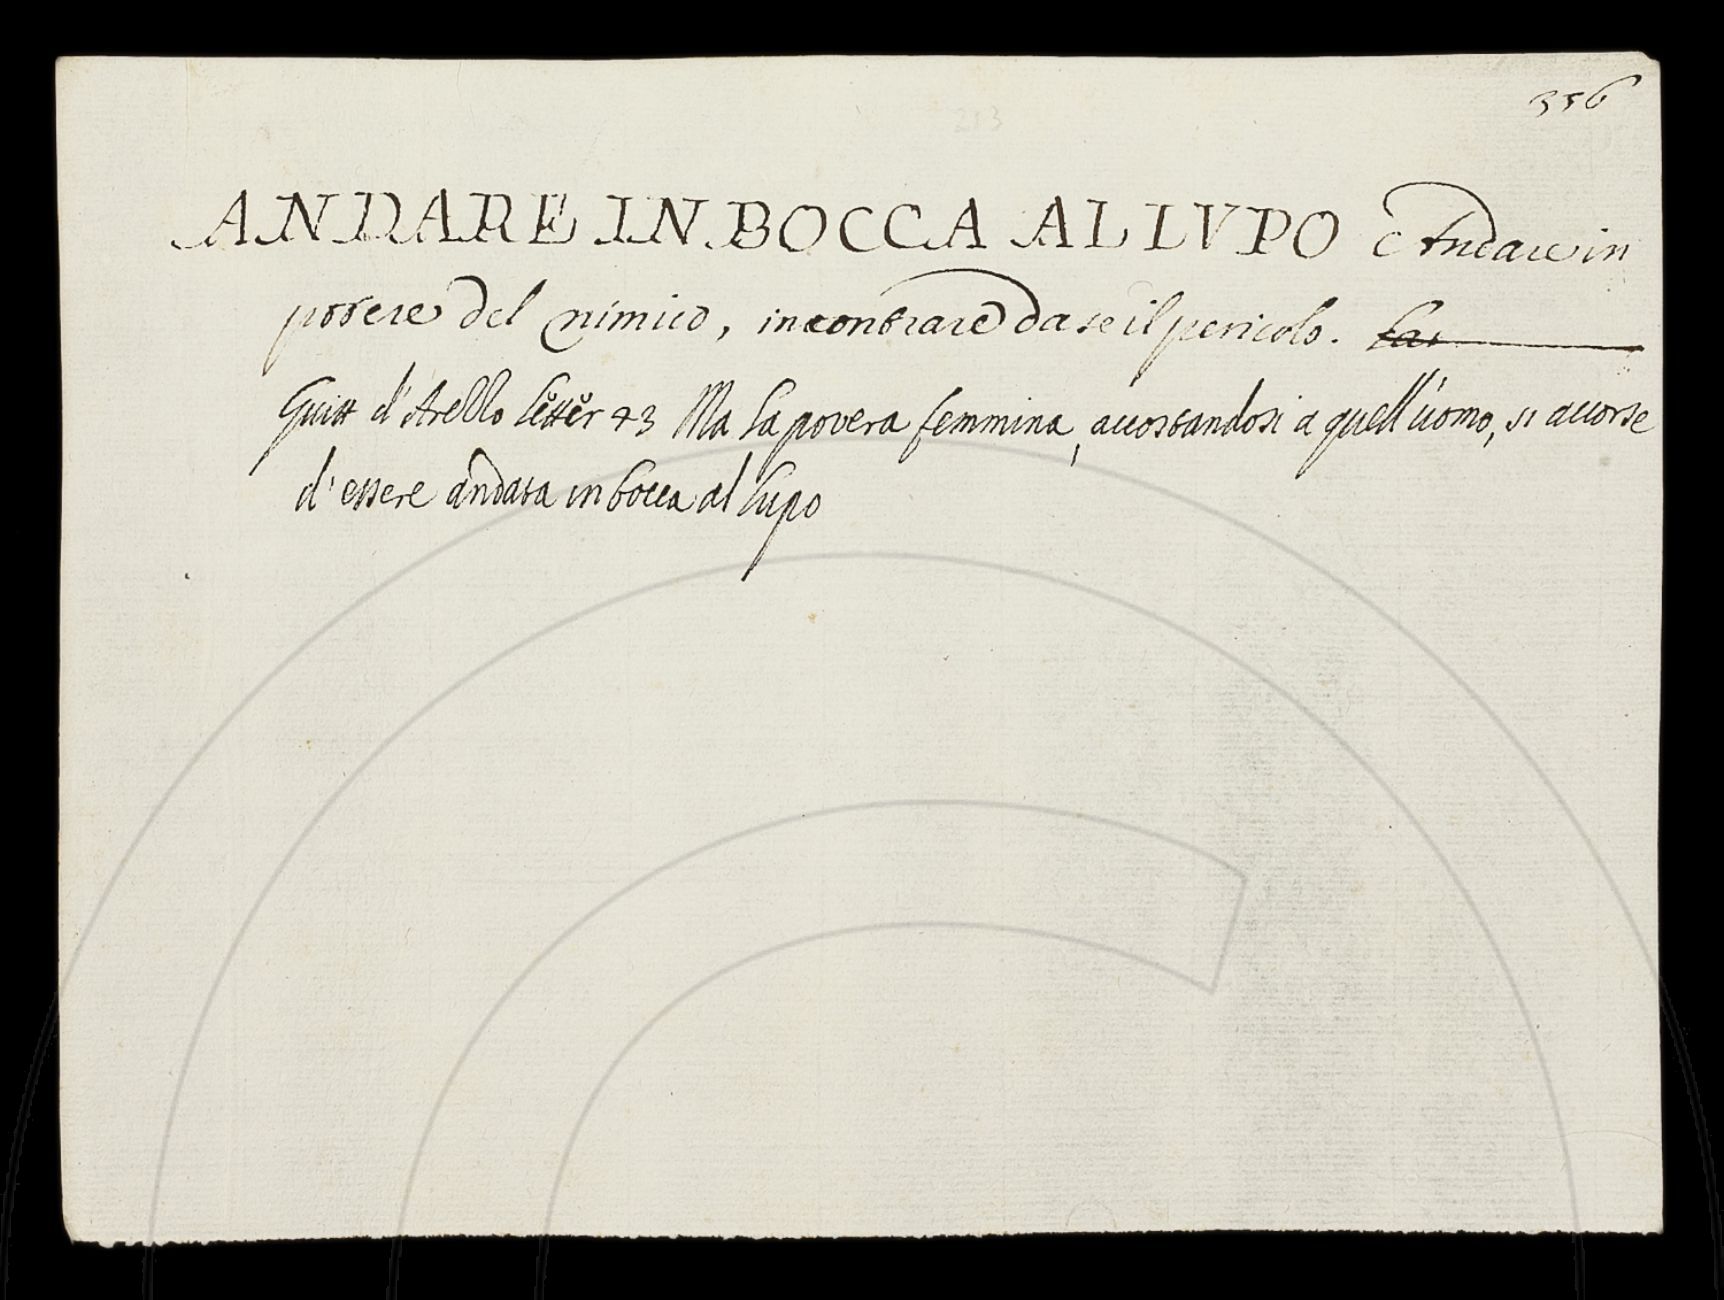 356
213
ANDARE IN BOCCA AL LVPO Andare in
potere del nimico, incontrare da se il pericolo. Lat
Guitt d'Arezzo letter 43 Ma la povera femmina, accostandosi a quell'uomo, si accorse
d'essere andata in bocca al lupo